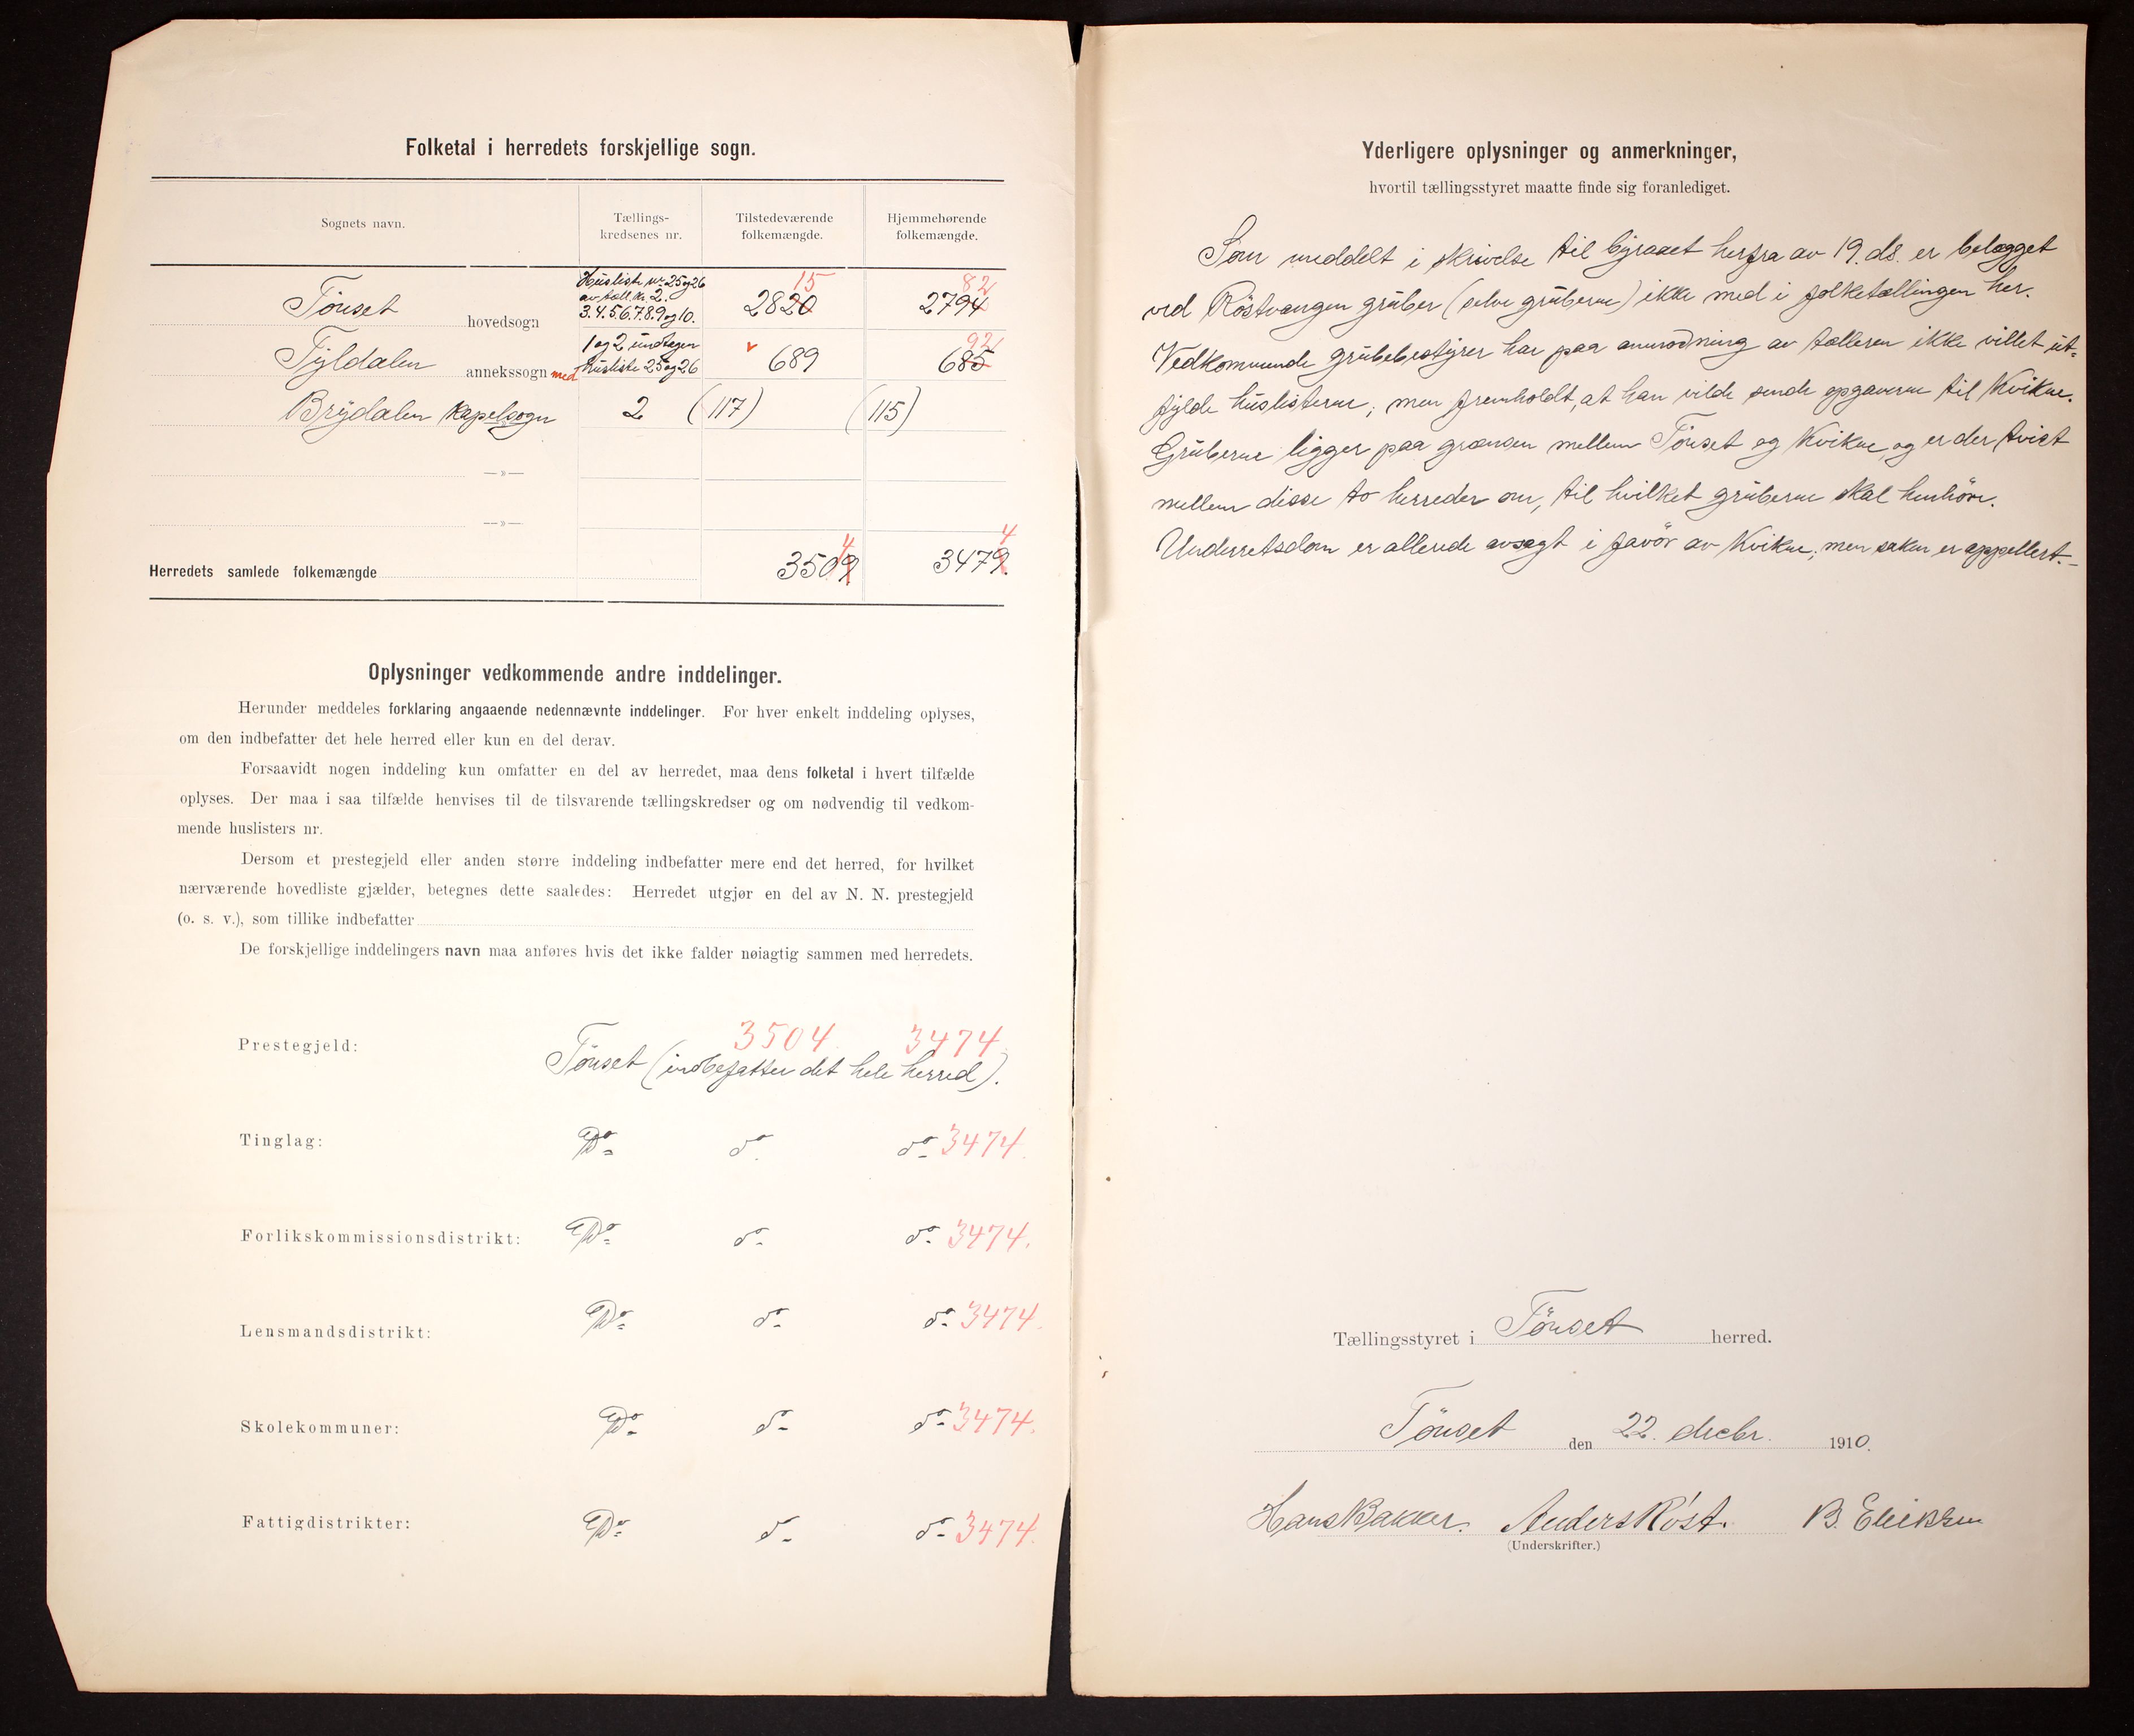 Folketal i herredets forskjellige sogn.
Sognets navn.
Tællings-
kredsenes nr.
Tilstedeværende
folkemængde.
Hjemmehørende
folkemængde.
Tönset hovedsogn
Husliste nr. 25 og 26
av tæll.kr. 2.
3.4.5.6.7.8.9 og 10.
15
2820
82
2794
Tyldalen annekssogn med
1 og 2 undtagen
husliste 25 og 26
689
92
685
Brydalen kapelsogn 2 (117) (115)
—»—
—»—
Herredets samlede folkemængde 3509 3479.
4 4
Oplysninger vedkommende andre inddelinger.
Herunder meddeles forklaring angaaende nedennævnte inddelinger. For hver enkelt inddeling oplyses,
om den indbefatter det hele herred eller kun en del derav.
Forsaavidt nogen inddeling kun omfatter en del av herredet, maa dens folketal i hvert tilfælde
oplyses. Der maa i saa tilfælde henvises til de tilsvarende tællingskredser og om nødvendig til vedkom-
mende huslisters nr.
Dersom et prestegjeld eller anden større inddeling indbefatter mere end det herred, for hvilket
nærværende hovedliste gjælder, betegnes dette saaledes: Herredet utgjør en del av N. N. prestegjeld
(o. s. v.), som tillike indbefatter
De forskjellige inddelingers navn maa anføres hvis det ikke falder nøiagtig sammen med herredets.
3504 3474
Prestegjeld: Tönset (indbefatter det hele herred).
Tinglag: Do do do 3474.
Forlikskommissionsdistrikt: Do do do 3474.
Lensmandsdistrikt: Do do do 3474.
Skolekommuner: Do do do 3474.
Fattigdistrikter: Do do do 3474.
Yderligere oplysninger og anmerkninger,
hvortil tællingsstyret maatte finde sig foranlediget.
Som meddelt i skrivelse til byraaet herfra av 19. ds. er belægget
ved Röstvangen gruber (selve gruberne) ikke med i folketællingen her.
Vedkommende grubebestyrer har paa anmodning av tælleren ikke villet ut-
fylde huslisterne; men fremholdt, at han vilde sende opgaverne til Kvikne.
Gruberne ligger paa grænsen mellem Tönset og Kvikne, og er der tvist
mellem disse to herreder om, til hvilket gruberne skal henhöre.
Underretsdom er allerede avsagt i favör av Kvikne; men saken er appellert.–
Tællingsstyret i Tönset herred.
Tönset den 22. decbr. 1910.
Hans Bakker. Anders Röst. B. Eliksen
(Underskrifter.)